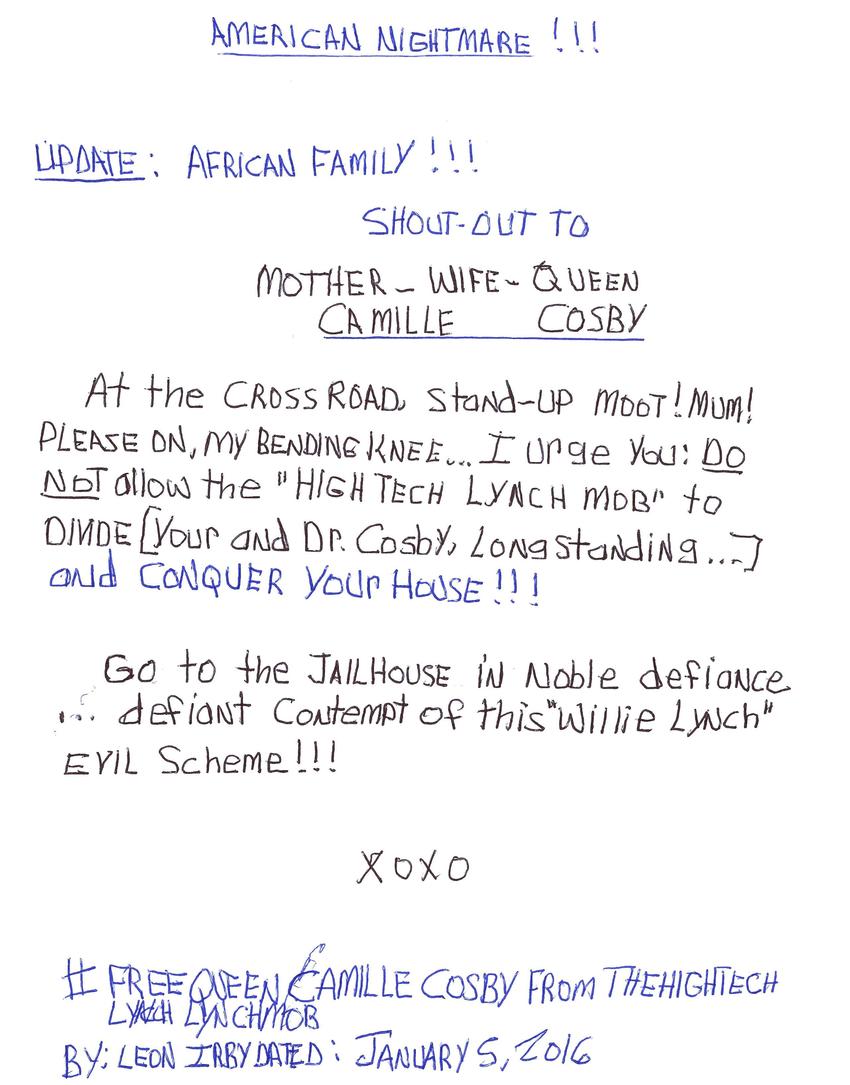 AMERICAN NIGHTMARE !!!
UPDATE: AFRICAN FAMILY!!!
SHOUT-OUT TO
MOTHER-WIFE-QUEEN
CAMILLE COSBY
At the CROSSROAD, Stand-UP MOOT! MUM!
PLEASE ON, MY BENDING KNEE... I urge You: DO
NOT allow the "HIGH TECH LYNCH MOB" to
DIVIDE [Your and Dr. Cosby, Longstanding...]
and CONQUER YOUr HOUSE!!!
Go to the JAILHOUSE IN Noble defiance
... defiant Contempt of this "Willie Lynch"
EVIL Scheme!!!
XOXO
# FREE QUEEN CAMILLE COSBY FROM THEHIGHTECH
LYNCH LYNCHMOB
BY: LEON IRBY DATED: JANUARY 5, 2016